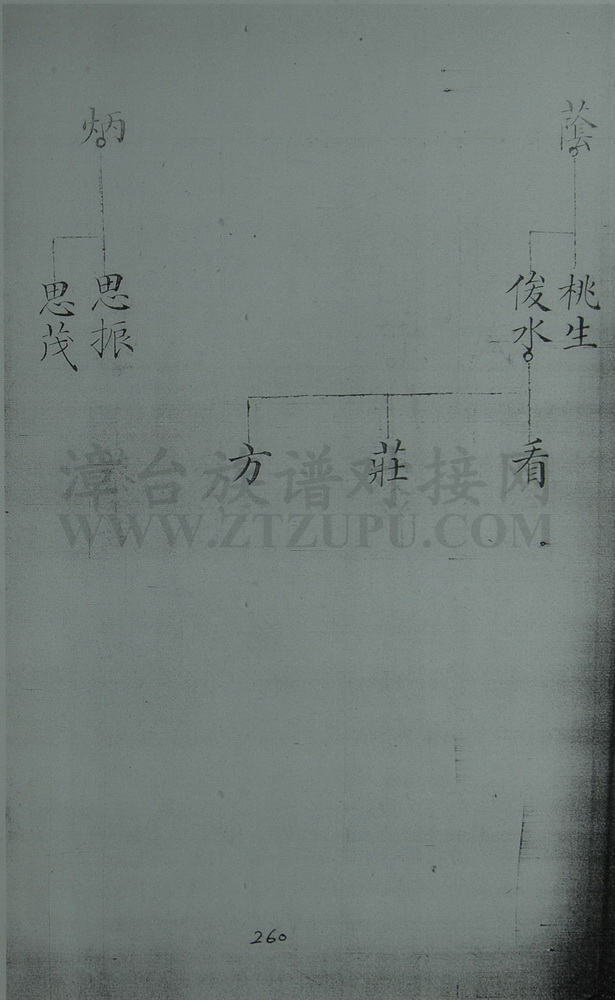 蔭
桃生
俊水
看
莊
方
炳
思振
思茂
漳台族谱对接网
WWW.ZTZUPU.COM
260